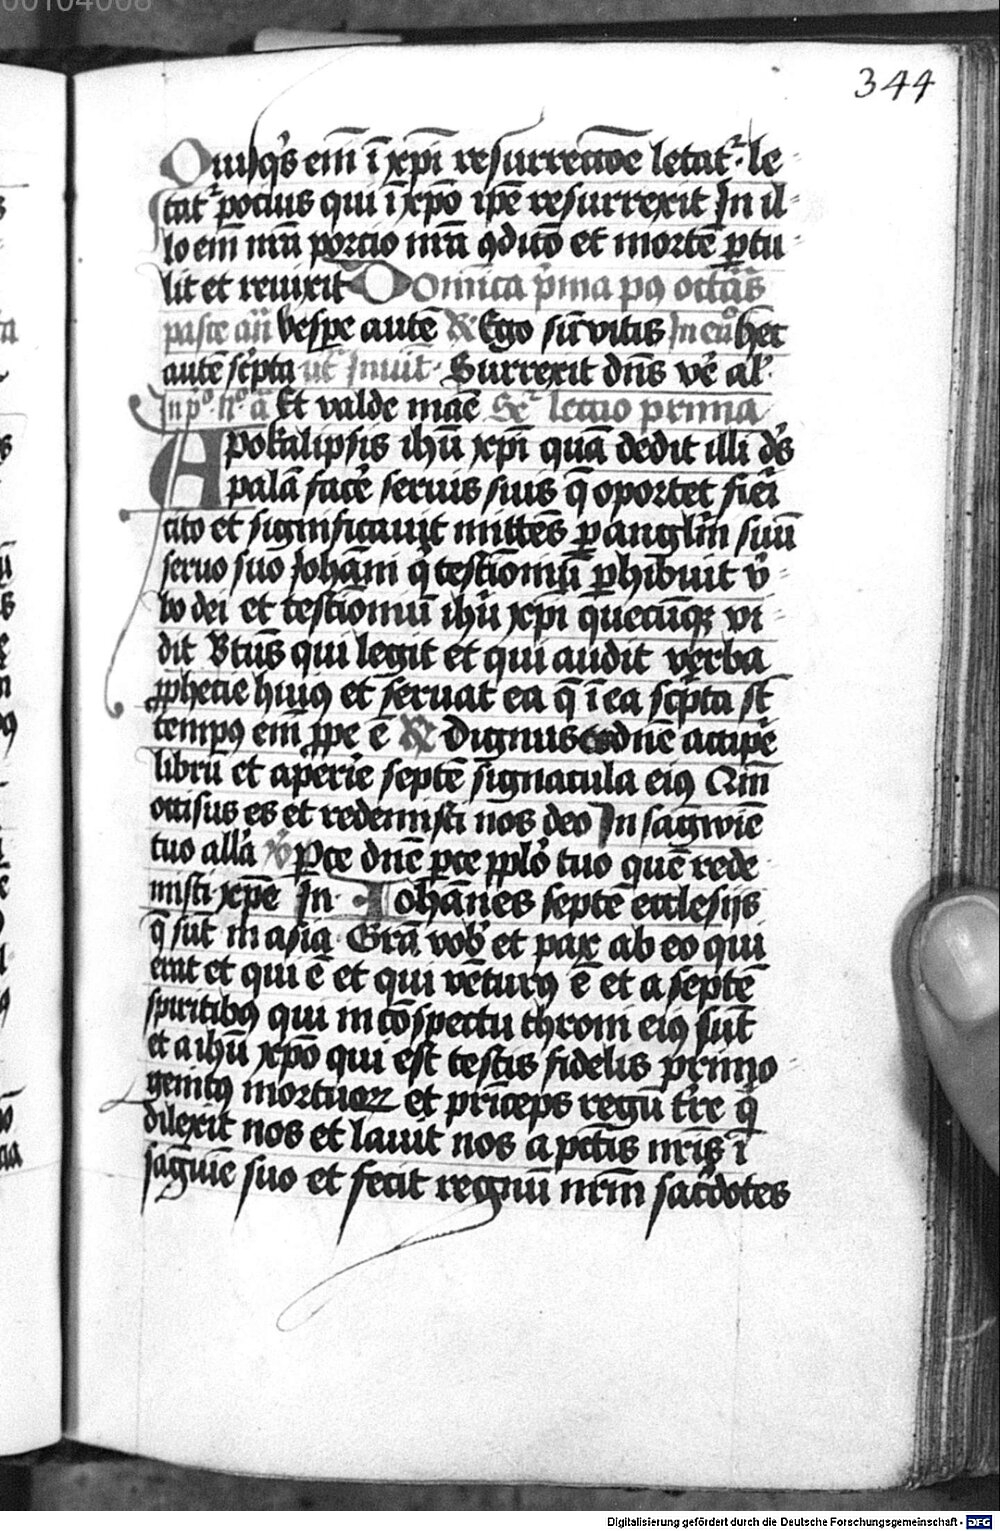 00104008
344
Quisqꝫ em̄ ī xp̄i resurrectōe letatʳ · le
tatʳ pocius qui ī xp̄o ip̄e resurrexit In il
lo em̄ nr̄a porcio nr̄a ꝯdicō et mortē ꝑtu
lit et reuixit Domīca p̓ma pꝰ octāᷤ
pasce an̄ Vespe autē ℟ Ego sū vitis In eū hec
autē sc̓pta ut Inuit · Surrexit dn̄s ve̓ al̓
In p̊ · n̊ · a᷑ Et valde mane Seʳ lectio prima
Apokalipsis ihū xp̄i quā dedit illi dꝰs
palā face̓ seruis suis q̄ oportet fie̓i
cito et significauit mittēs ꝑ anglm̄ suū
seruo suo Joha̅ni q̓ testīoniū ꝑhibuit v̓
bo dei et testīoniū ihū xp̄i quecūqꝫ vi
dit Btūs qui legit et qui audit verba
ꝓphecie huiꝰ et seruat ea q̄ ī ea sc̓pta st̄
tempꝰ em̄ ꝓpe ē ℟ Dignus es dn̄e accipe̓
librū et aperire septē signacula eiꝰ Qm̄
occisus es et redemisti nos deo In sāgwīe
tuo alla̓ ℣ Pce dn̄e pce pplo̓ tuo quē rede
misti xp̄e In Johānes septē ecclesijs
q̄ sūt in asia Gr̄a vob̓ et pax ab eo qui
erat et qui ē et qui vēturꝰ ē et a septē
spiritibꝰ qui in cōspectu throni eiꝰ sūt
et a ihū xp̄o qui est testis fidelis primo
genitꝰ mortuoꝝ et prīceps regū tr̄e q̓
dilexit nos et lauit nos a pctīs nr̄is ī
sāguīe suo et fecit regnū nr̄m sac̓dotes
Digitalisierung gefördert durch die Deutsche Forschungsgemeinschaft - DFG